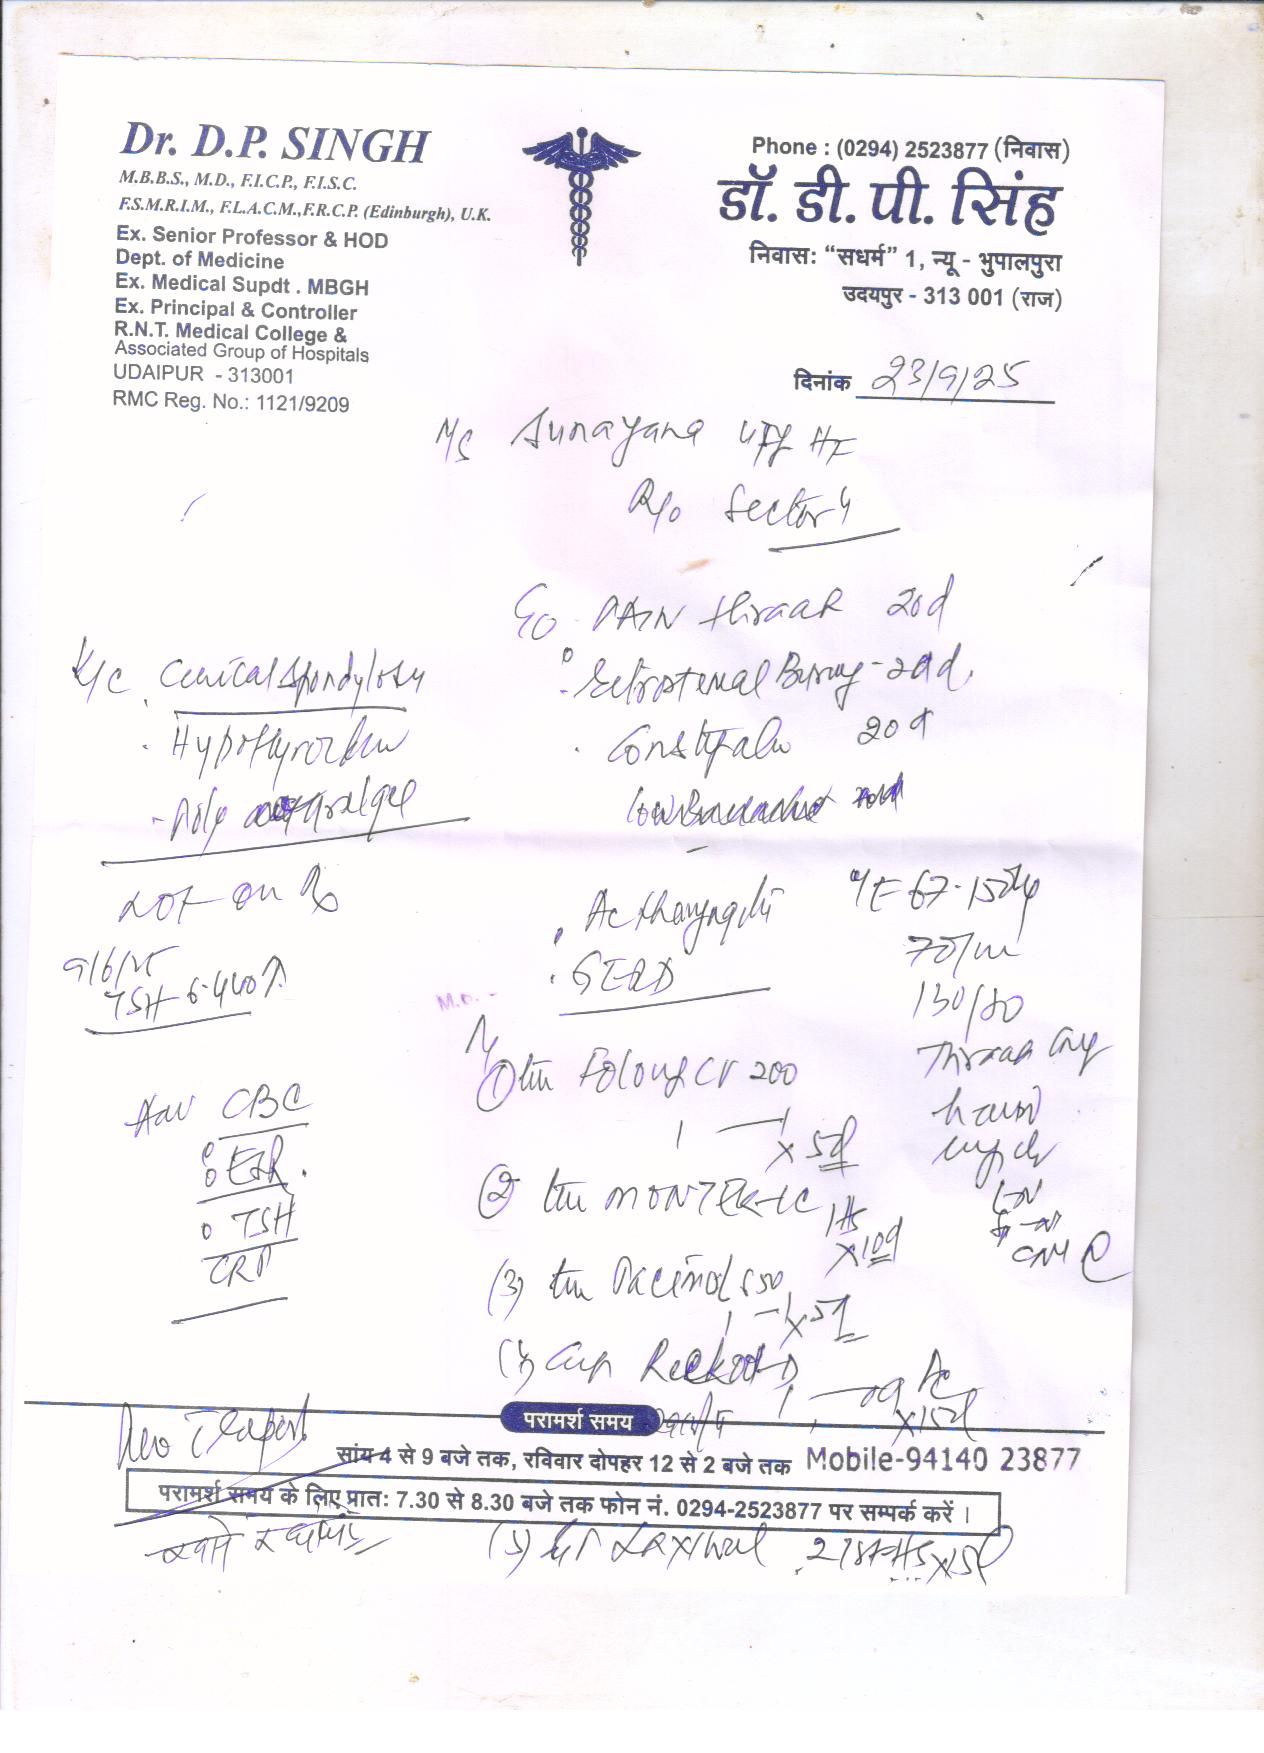 Dr. D.P. SINGH
M.B.B.S., M.D., F.I.C.P., F.I.S.C.
F.S.M.R.I.M., F.L.A.C.M.,F.R.C.P. (Edinburgh), U.K.
Ex. Senior Professor & HOD
Dept. of Medicine
Ex. Medical Supdt . MBGH
Ex. Principal & Controller
R.N.T. Medical College &
Associated Group of Hospitals
UDAIPUR - 313001
RMC Reg. No.: 1121/9209
Phone : (0294) 2523877 (निवास)
डॉ. डी. पी. सिंह
निवास: “सधर्म” 1, न्यू - भुपालपुरा
उदयपुर - 313 001 (राज)
दिनांक 23/9/25
M/s Sunayana
R/o Sector 4
C/o PAIN throat 20d
Retrosternal Burning - 20d
Constipation 20d
K/C Cervical Spondylosis
Hypothyroidism
Poly
Not on Rx
9/6/25
TSH 6.440↑
Adv CBC
ESR
TSH
CRP
Ac Pharyngitis
GERD
O/E 67.15
70/m
130/80
Throat Cong
M.D. -
(1) CV 200
1 — 1 x 5d
(2) MONTEK-LC 1 HS
x 10d
(3) Pacimol 650
1 — 1 x 5d
(4) Cap
1 AC
x 15d
Rev Report
परामर्श समय
सांय 4 से 9 बजे तक, रविवार दोपहर 12 से 2 बजे तक Mobile-94140 23877
परामर्श समय के लिए प्रात: 7.30 से 8.30 बजे तक फोन नं. 0294-2523877 पर सम्पर्क करें ।
(5) 2 HS x 15d